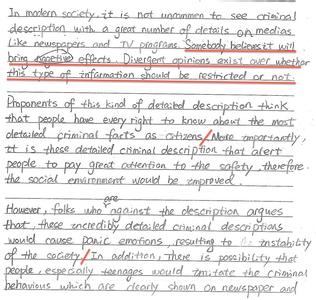 In modern society, it is not uncommon to see criminal
description with a great number of details on medias
like newspapers and TV programs. Somebody believes it will
bring negetive effects. Divergent opinions exist over whether
this type of information should be restricted or not.
Proponents of this kind of detailed description think
that people have every right to know about the most
detailed criminal facts as citizens/ More importantly,
it is these detailed criminal description that alert
people to pay great attention to the safety, therefore
the social environment would be improved.
However, folks who are against the description argues
that, these incredibly detailed criminal descriptions
would cause panic emotions, resulting to instability
of the society/ In addition, there is possibility that
people, especially teenages would imitate the criminal
behavious which are clearly shown on newspaper and